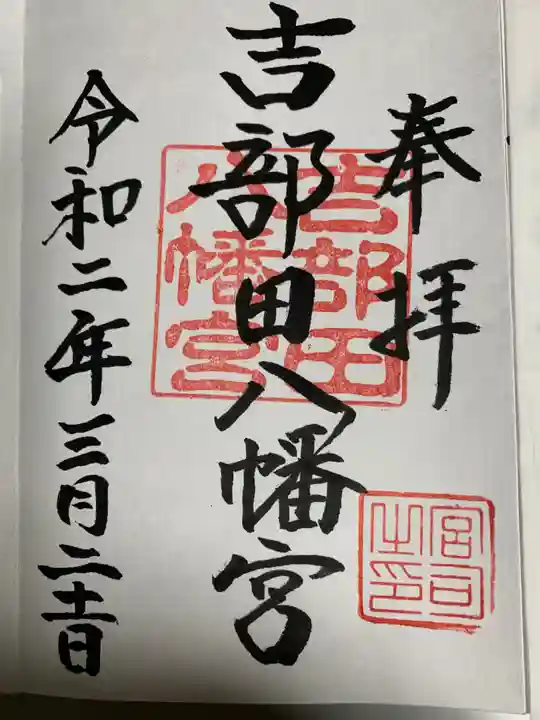 奉拝
吉部田八幡宮
吉部田
八幡宮
宮司
之印
令和二年三月二十一日